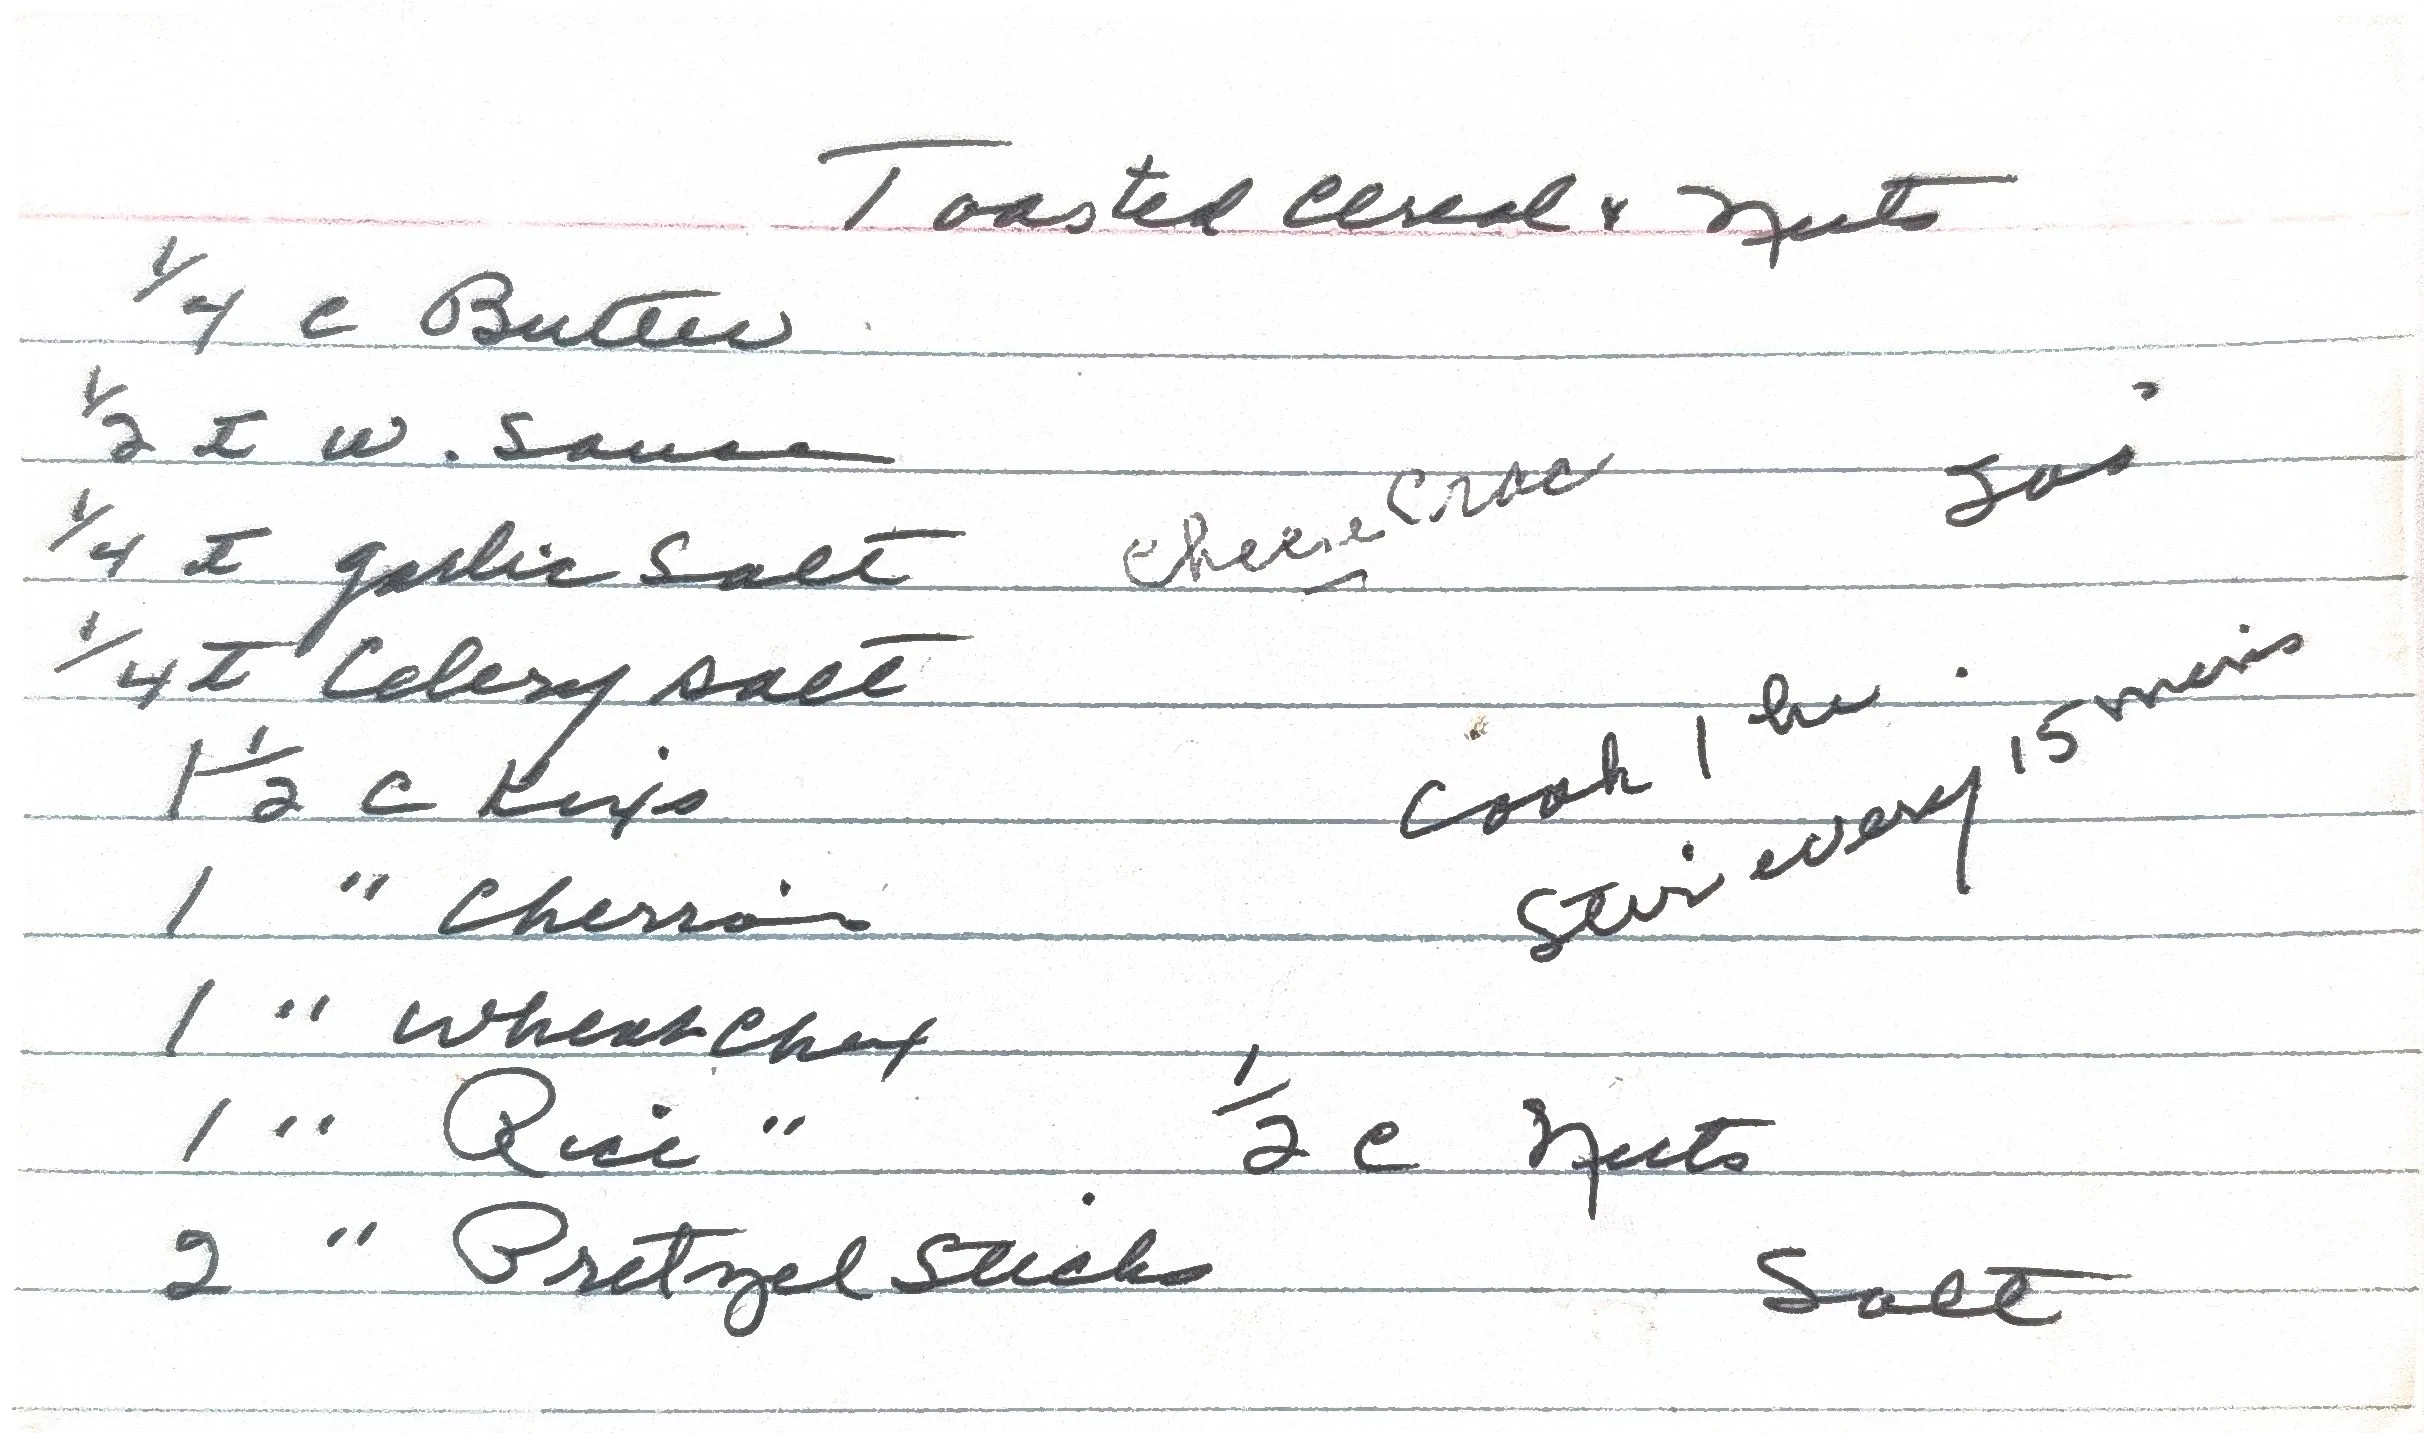 Toasted Cereal & Nuts
1/4 c Butter
1/2 t w. Sauce
1/4 t garlic Salt
Cheese Crac
1/4 t Celery salt
1 1/2 c Kixs
Cook 1 hr.
Stir every 15 mins
1 " Cherrios
1 " Wheat Chex
1 " Rice "
1/2 c Nuts
2 " Pretzel Sticks
Salt